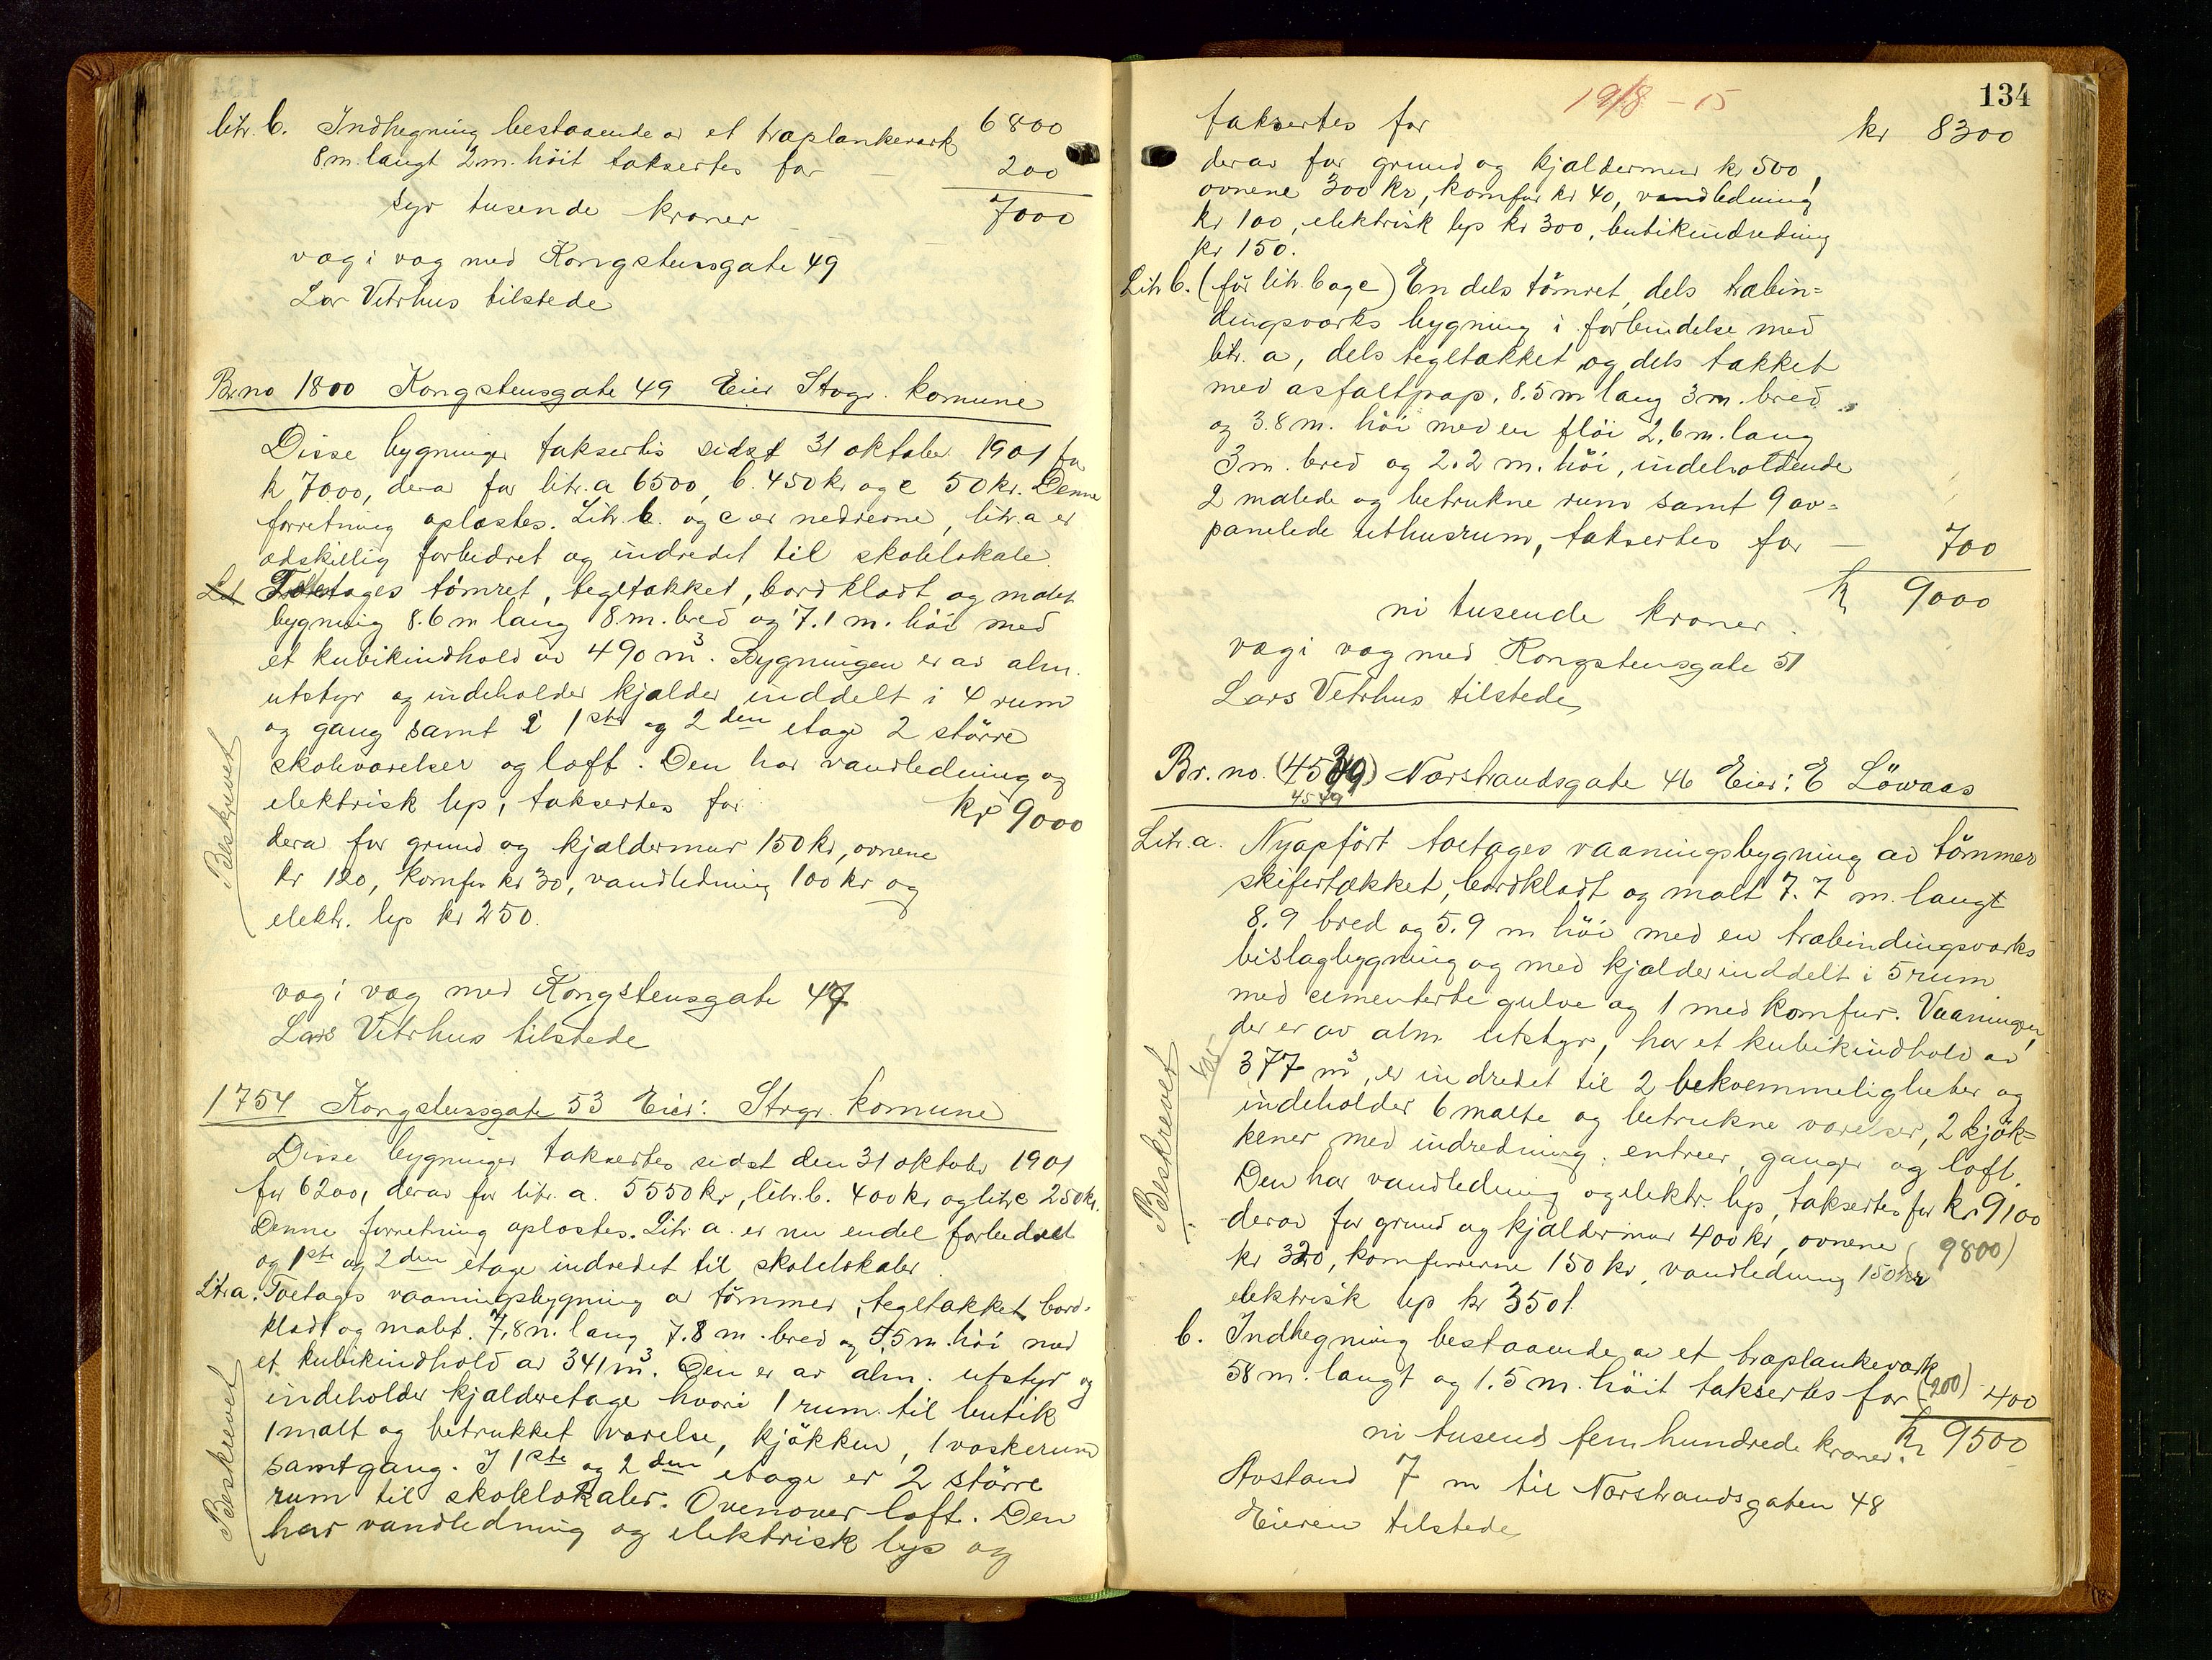 litr. b. Indhegning bestaaende av et træplankeværk 6800
8 m. langt 2 m. höit taksertes for — 200
syv tusende kroner — 7000
væg i væg med Kongstensgate 49
Lars Vetrhus tilstede
Br.no 1800 Kongstensgate 49 Eier Stvgr. komune
Disse bygninger taksertes sidst 31 oktober 1901 for
kr 7000, derav for litr. a 6500, b. 450 kr og c 50 kr. Denne
forretning oplæstes. Litr. b. og c er nedrevne, litr. a er
adskillig forbedret og indredet til skolelokale.
Toetages tömret, tegltækket, bordklædt og malet
bygning 8.6 m lang 8 m. bred og 7.1 m. höi med
et kubikindhold av 490 m³. Bygningen er av alm.
utstyr og indeholder kjælder inddelt i 4 rum
og gang samt i 1ste og 2den etage 2 större
skoleværelser og loft. Den har vandledning og
elektrisk lys, taksertes for kr 9000
derav for grund og kjældermur 150 kr, ovnene
kr 120, komfur kr 30, vandledning 100 kr og
elektr. lys kr 250.
Beskrevet
væg i væg med Kongstensgate 47
Lars Vetrhus tilstede
1754 Kongstensgate 53 Eier: Stvgr. komune
Disse bygninger taksertes sidst den 31 oktober 1901
for 6200, derav for litr. a. 5550 kr, litr. b. 400 kr og litr. c 250 kr.
Denne forretning oplæstes. Litr. a. er nu endel forbedret
og 1ste og 2den etage indredet til skolelokaler
Litr a. Toetages vaaningsbygning av tömmer, tegltækket bord-
klædt og malet. 7,8 m. lang 7.8 m. bred og 5,5 m. höi med
et kubikindhold av 341 m³. Den er av alm. utstyr og
indeholder kjælderetage hvori 1 rum til butik
1 malt og betrukket værelse, kjökken, 1 vaskerum
samt gang. I 1ste og 2den etage er 2 större
rum til skolelokaler. Ovenover loft. Den
har vandledning og elektrisk lys og
Beskrevet
134
19/8 - 15
taksertes for kr 8300
derav for grund og kjældermur kr 500,
ovnene 300 kr, komfur kr 40, vandledning
kr 100, elektrisk lys kr 300, butikindredning
kr 150.
Litr b. (för litr. b og c) En dels tömret, dels træbin-
dingsværks bygning i forbindelse med
litr. a, dels tegltækket og dels tækket
med asfaltpap. 8.5 m lang 3 m. bred
og 3.8 m. höi med en flöi 2,6 m. lang
3 m. bred og 2.2 m. höi, indeholdende
2 malede og betrukne rum samt 9 av-
panelede uthusrum, taksertes for — 700
kr 9000
ni tusende kroner.
væg i væg med Kongstensgate 51
Lars Vetrhus tilstede
Br. no. (4549) Norstrandsgate 46 Eier: E Löwaas
4549
Litr. a. Nyopfört toetages vaaningsbygning av tömmer
skifertækket, bordklædt og malt 7.7 m. langt
8.9 bred og 5.9 m höi med en træbindingsværks
bislagbygning og med kjælder inddelt i 5 rum
med cementerte gulve og 1 med komfur. Vaaningen,
der er av alm utstyr, har et kubikindhold av
377 m³, er indredet til 2 bekvemmeligheter og
indeholder 6 malte og betrukne værelser, 2 kjök-
kener med indredning, entreer, ganger og loft.
Den har vandledning og elektr. lys, taksertes for kr 9100
derav for grund og kjældermur 400 kr, ovnene (9800)
kr 320, komfurerne 150 kr, vandledning 150 kr
elektrisk lys kr 350.
Beskrevet
b. Indhegning bestaaende av et træplankeværk
58 m. langt og 1.5 m. höit taksertes for (200) 400
ni tusend femhundrede kroner. kr 9500
Avstand 7 m til Norstrandsgaten 48
Eieren tilstede